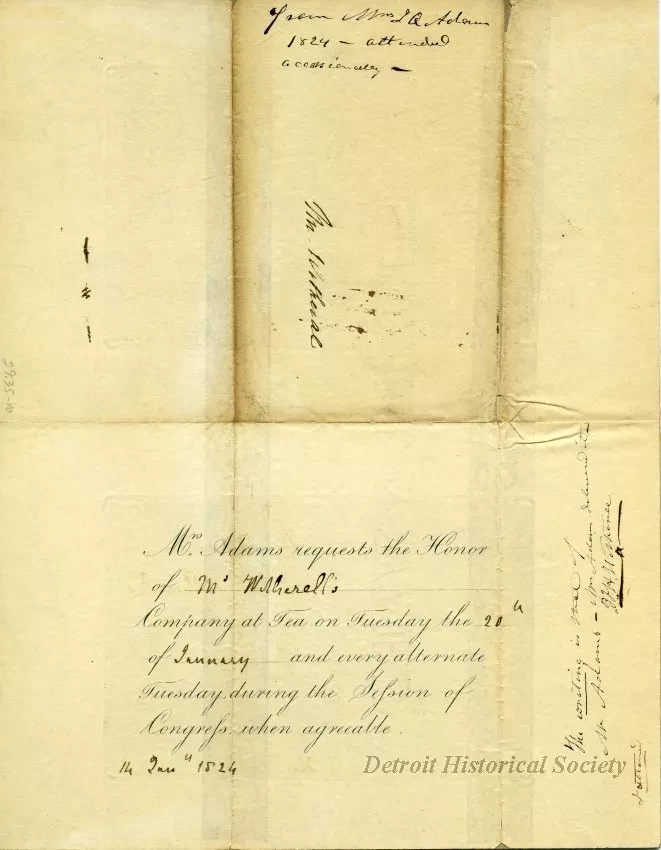 From Mrs J Q Adams
1824 - attended
occasionally -
Mr. Witherell
Mrs. Adams requests the Honor
of Mr Witherell's
Company at Tea on Tuesday the 20th
of January and every alternate
Tuesday, during the Session of
Congress, when agreeable.
14 Jany 1824
The writing is that of
Mr Adams - Mr Adams delivered it
Detroit Historical Society